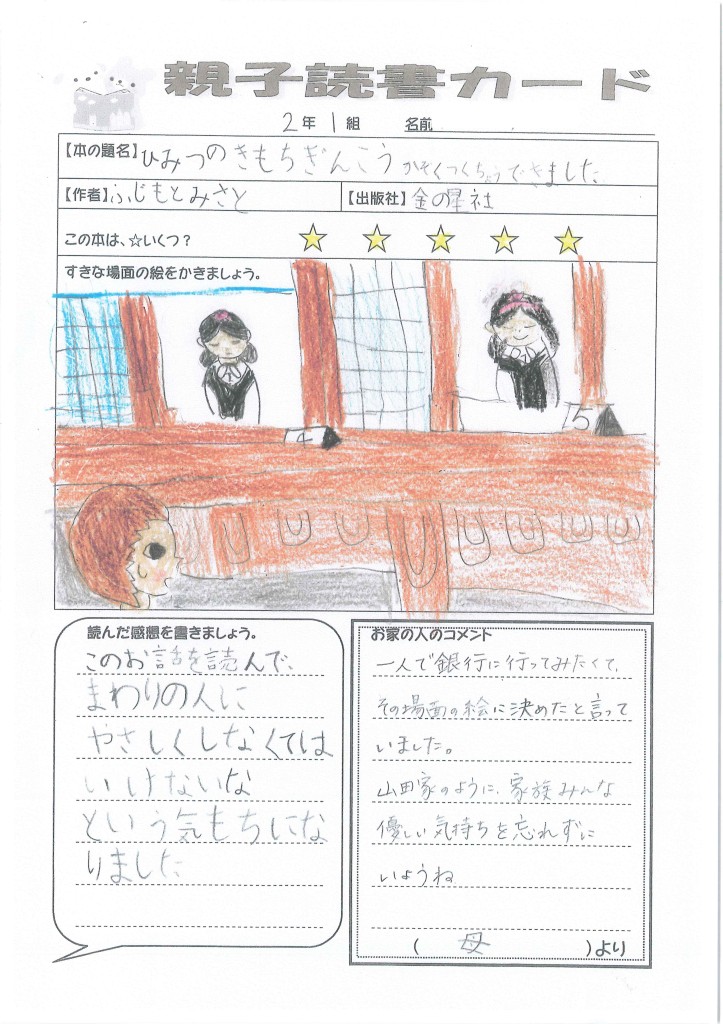 親子読書カード
2年 1組 名前
【本の題名】ひみつのきもちぎんこう かぞくつうちょうできました
【作者】ふじもとみさと 【出版社】金の星社
この本は、☆いくつ？
すきな場面の絵をかきましょう。
4
5
読んだ感想を書きましょう。
このお話を読んで、
まわりの人に
やさしくしなくては
いけないな
という気もちにな
りました
お家の人のコメント
一人で銀行に行ってみたくて、
その場面の絵に決めたと言って
いました。
山田家のように、家族みんな
優しい気持ちを忘れずに
いようね
( 母 )より